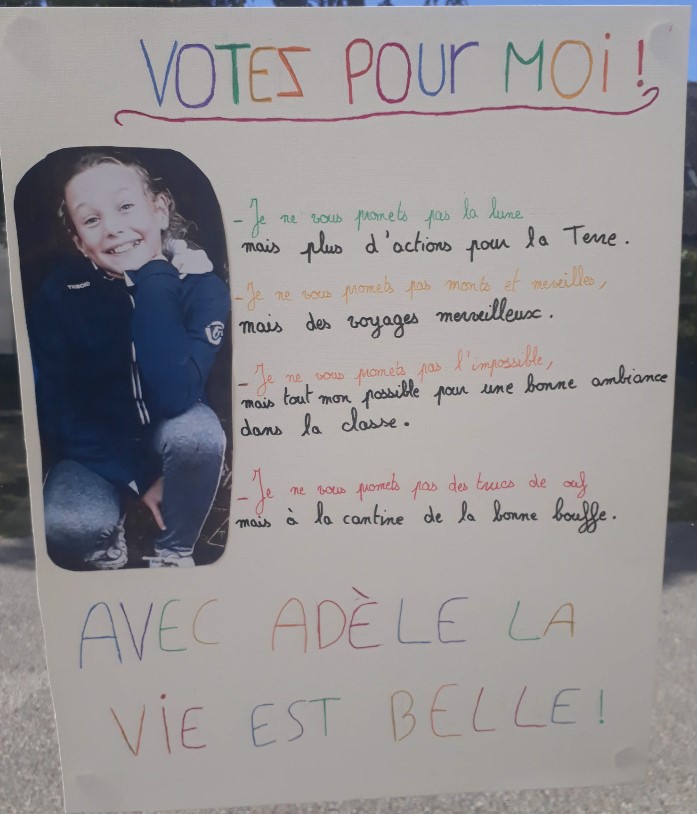 VOTES POUr MOi !
- Je ne vous promets pas la lune
mais plus d'actions pour la Terre.
- Je ne vous promets pas monts et merveilles,
mais des voyages merveilleux.
- Je ne vous promets pas l'impossible,
mais tout mon possible pour une bonne ambiance
dans la classe.
- Je ne vous promets pas des trucs de ouf
mais à la cantine de la bonne bouffe.
AVEC ADÈLE LA
ViE EST BELLE !